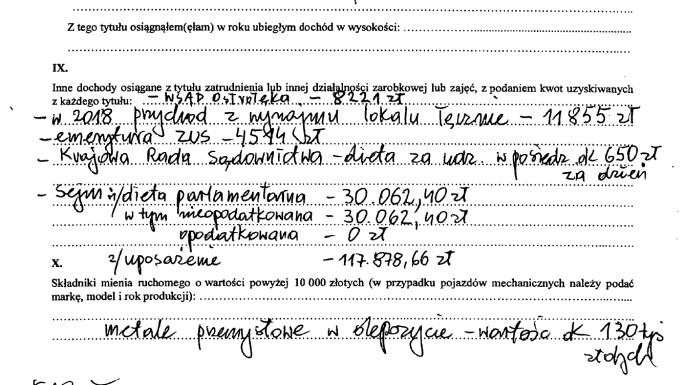 Z tego tytułu osiągnąłem(ęłam) w roku ubiegłym dochód w wysokości:
IX.
Inne dochody osiągane z tytułu zatrudnienia lub innej działalności zarobkowej lub zajęć, z podaniem kwot uzyskiwanych
z każdego tytułu: – WSAP Ostrołęka – 8221 zł
– w 2018 przychód z wynajmu lokalu łącznie – 11 855 zł
– emerytura ZUS – zł
– Krajowa Rada Sądownictwa – dieta za udz. w pośiedz. ok 650 zł
za dzień
– Sejm 1/dieta parlamentarna – 30.062,40 zł
w tym nieopodatkowana – 30.062,40 zł
opodatkowana – 0 zł
2/uposażenie – 117.878,66 zł
X.
Składniki mienia ruchomego o wartości powyżej 10 000 złotych (w przypadku pojazdów mechanicznych należy podać
markę, model i rok produkcji):
metale przemysłowe w depozycie – wartość ok 130 tyś
złotych